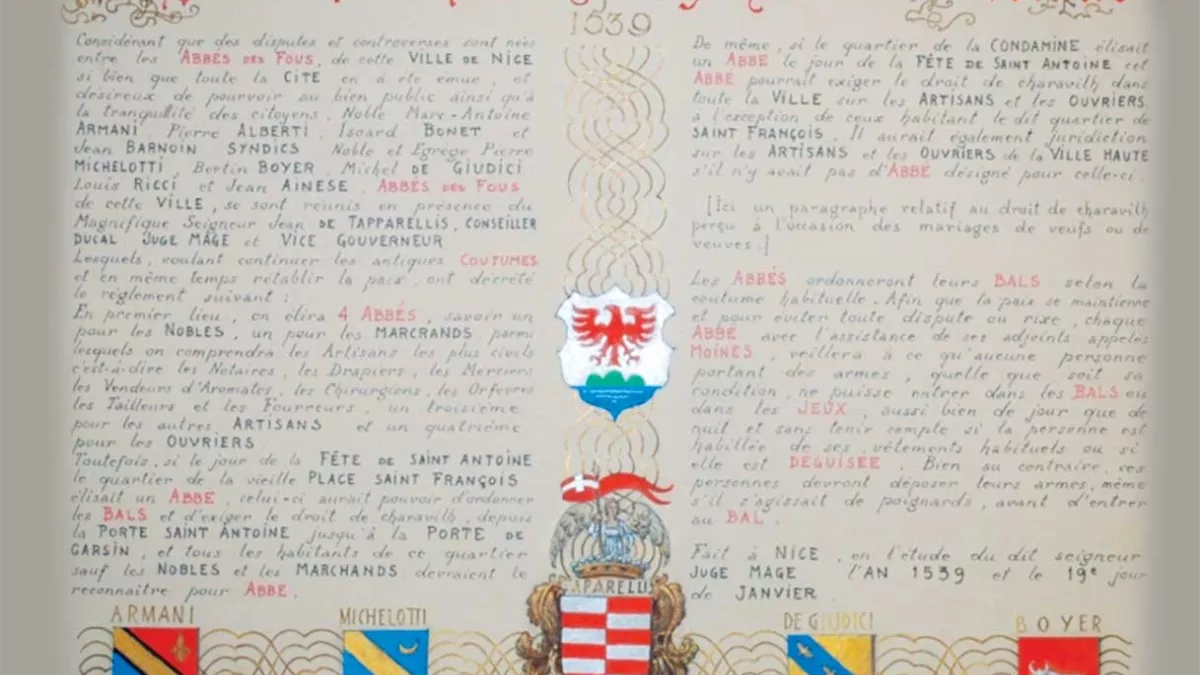 1539
Considérant que des disputes et controverses sont nées
entre les ABBÉS DES FOUS, de cette VILLE DE NICE
si bien que toute la CITÉ en a été émue, et
désireux de pourvoir au bien public ainsi qu'à
la tranquillité des citoyens, Noble Marc-Antoine
ARMANI, Pierre ALBERTI, Isoard BONET et
Jean BARNOIN SYNDICS Noble et Egrège Pierre
MICHELOTTI, Bertin BOYER, Michel DE GIUDICI
Louis RICCI et Jean AINESE, ABBÉS DES FOUS
de cette VILLE, se sont réunis en présence du
Magnifique Seigneur Jean DE TAPPARELLIS, CONSEILLER
DUCAL JUGE MAGE et VICE GOUVERNEUR
Lesquels, voulant continuer les antiques COUTUMES
et en même temps rétablir la paix, ont décrété
le règlement suivant :
En premier lieu, on élira 4 ABBÉS, savoir un
pour les NOBLES, un pour les MARCRANDS parmi
lesquels on comprendra les Artisans les plus civils
c'est-à-dire les Notaires, les Drapiers, les Merciers
les Vendeurs d'Aromates, les Chirurgiens, les Orfèvres
les Tailleurs et les Fourreurs, un troisième
pour les autres ARTISANS et un quatrième
pour les OUVRIERS
Toutefois, si le jour de la FÊTE DE SAINT ANTOINE
le quartier de la vieille PLACE SAINT FRANÇOIS
élisait un ABBÉ, celui-ci aurait pouvoir d'ordonner
les BALS et d'exiger le droit de charavilh, depuis
la PORTE SAINT ANTOINE jusqu'à la PORTE DE
GARSIN, et tous les habitants de ce quartier
sauf les NOBLES et les MARCHANDS devraient le
reconnaître pour ABBE.
De même, si le quartier de la CONDAMINE élisait
un ABBÉ le jour de la FÊTE DE SAINT ANTOINE cet
ABBÉ pourrait exiger le droit de charavilh dans
toute la VILLE sur les ARTISANS et les OUVRIERS
à l'exception de ceux habitant le dit quartier de
SAINT FRANÇOIS. Il aurait également juridiction
sur les ARTISANS et les OUVRIERS de la VILLE HAUTE
s'il n'y avait pas d'ABBÉ désigné pour celle-ci.
[Ici un paragraphe relatif au droit de charavilh
perçu à l'occasion des mariages de veufs ou de
veuves.]
Les ABBÉS ordonneront leurs BALS selon la
coutume habituelle. Afin que la paix se maintienne
et pour éviter toute dispute ou rixe, chaque
ABBÉ avec l'assistance de ses adjoints appelés
MOINES, veillera à ce qu'aucune personne
portant des armes, quelle que soit sa
condition, ne puisse entrer dans les BALS ou
dans les JEUX, aussi bien de jour que de
nuit et sans tenir compte si la personne est
habillée de ses vêtements habituels ou si
elle est DEGUISÉE. Bien au contraire, ces
personnes devront déposer leurs armes, même
s'il s'agissait de poignards, avant d'entrer
au BAL.
Fait à NICE, en l'étude du dit seigneur
JUGE MAGE l'AN 1539 et le 19e jour
de JANVIER.
APARELLI
ARMANI
MICHELOTTI
DE GIUDICI
BOYER